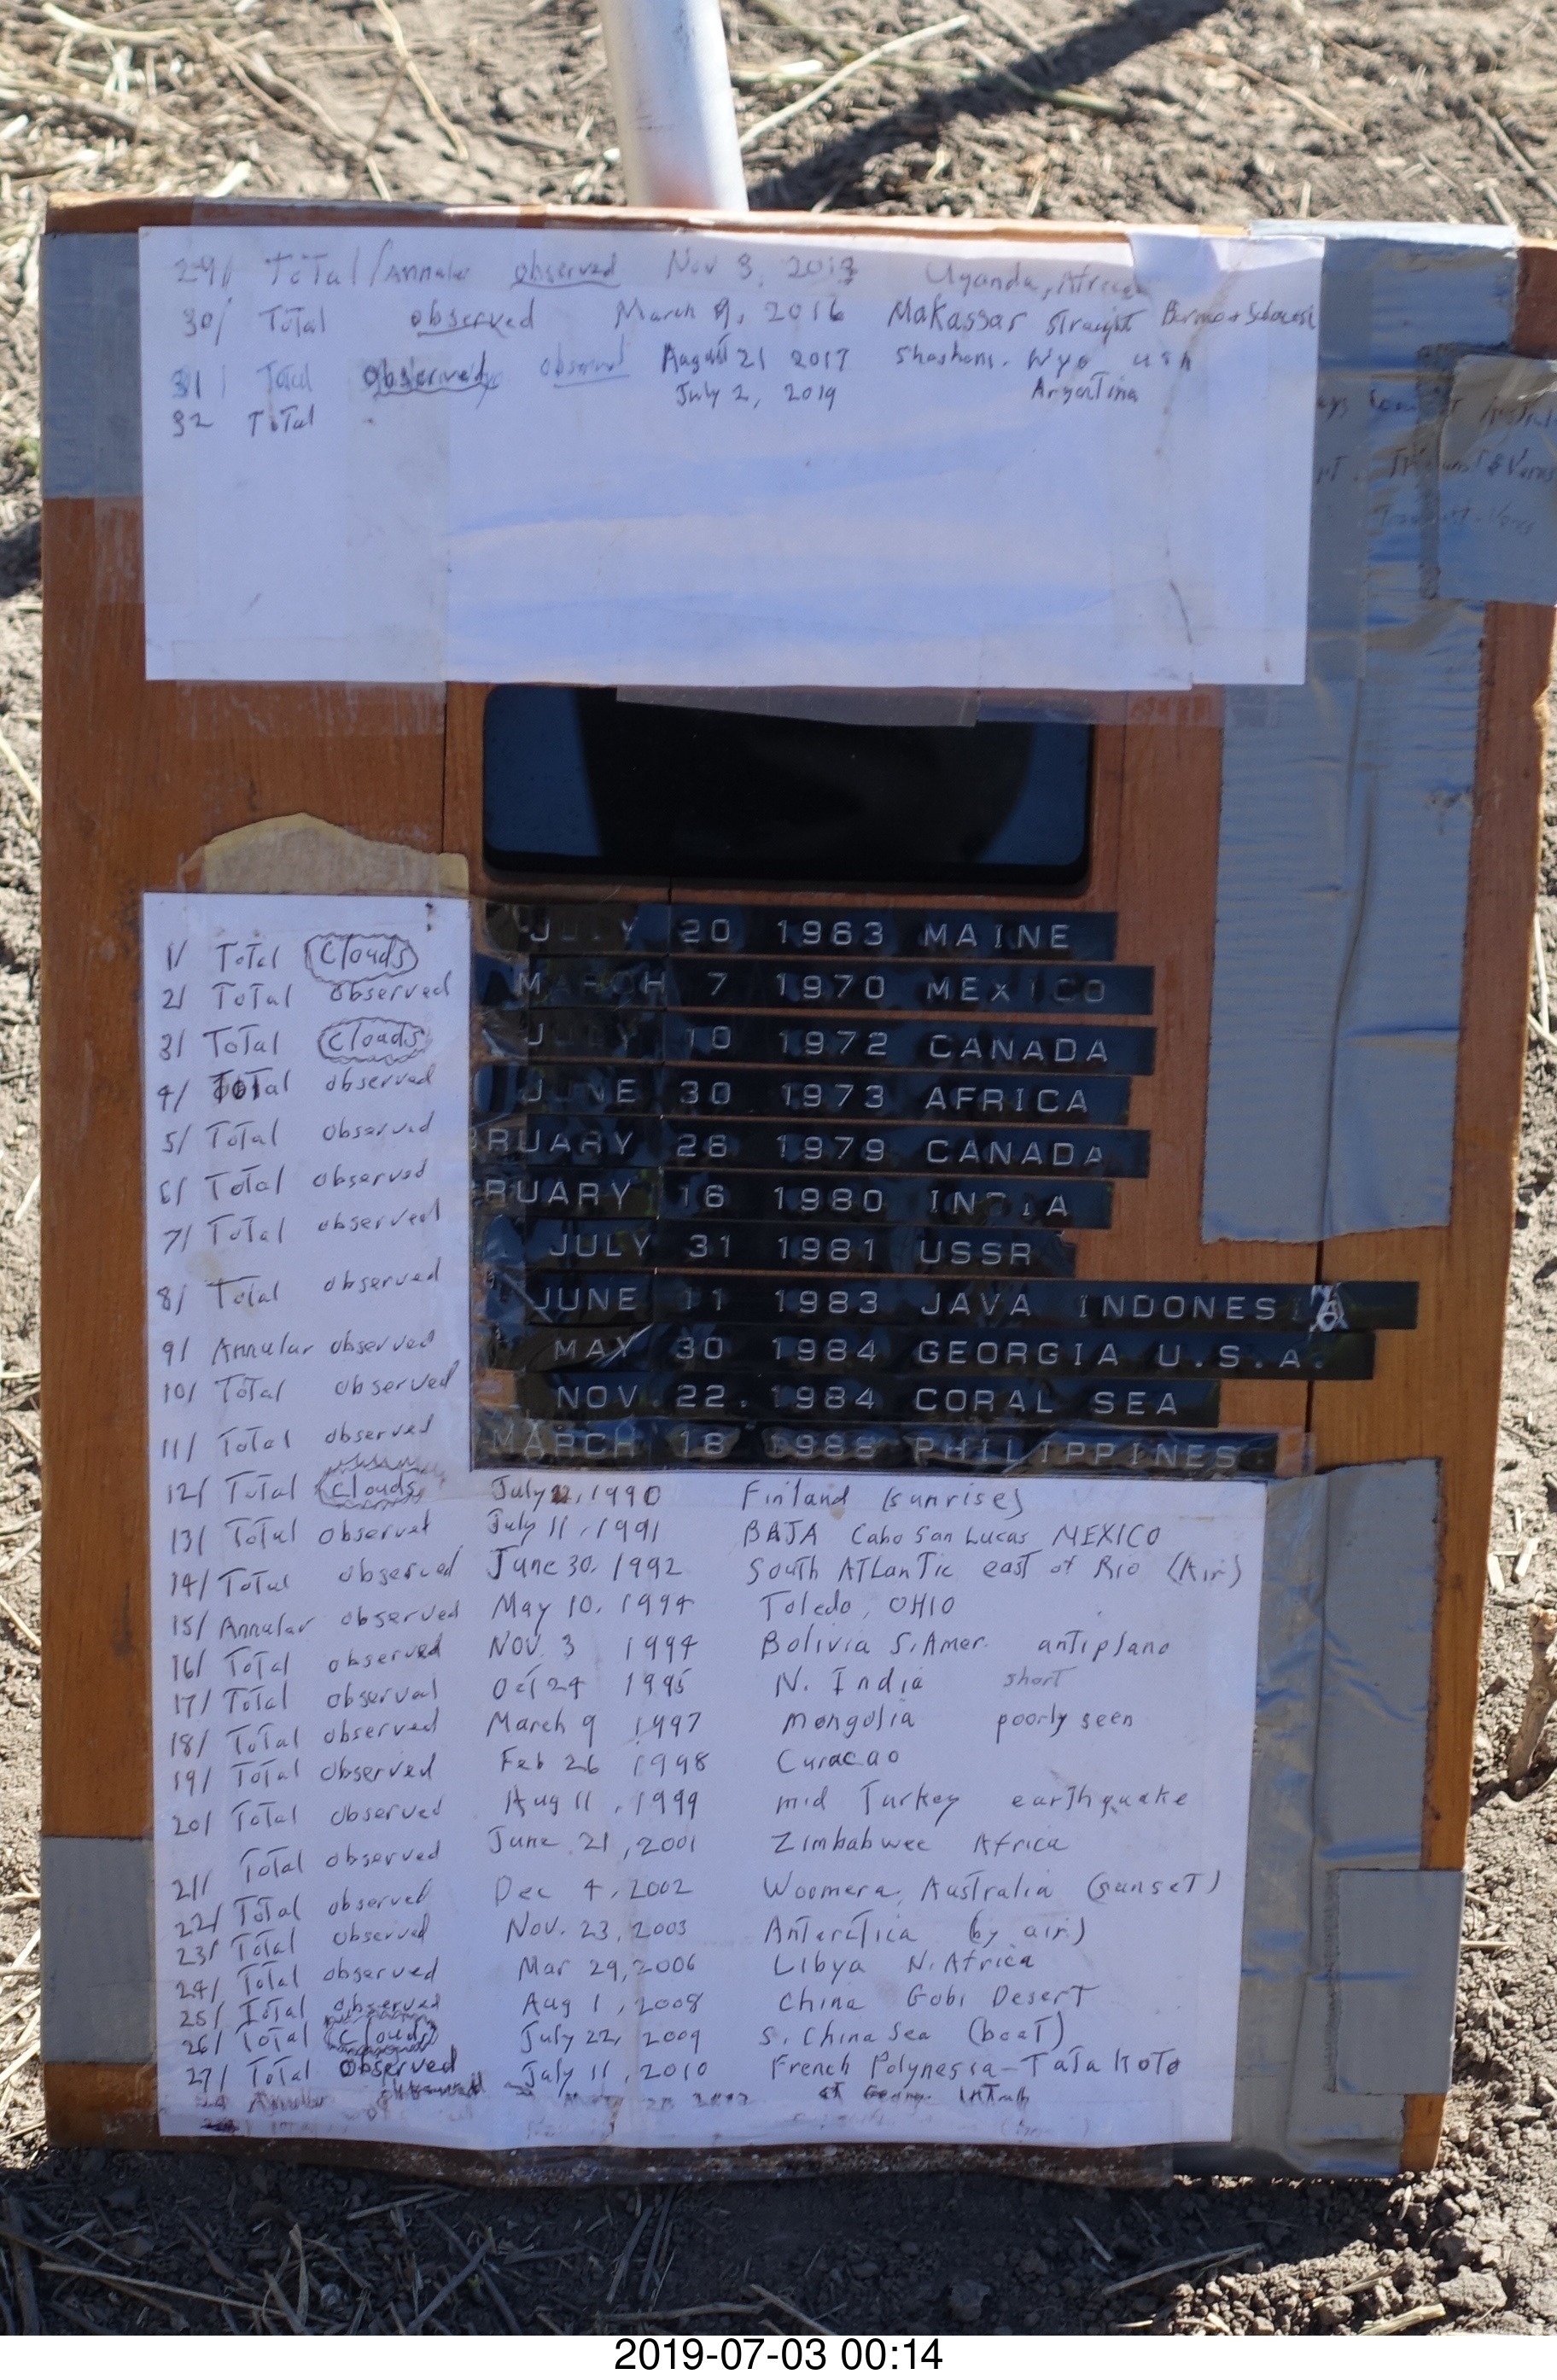 29/ Total/Annular observed Nov 3, 2013 Uganda, Africa
30/ Total observed March 9, 2016 Makassar Straight
31 Total observed observed August 21 2017 Shoshoni. Wyo USA
32 Total July 2, 2019 Argentina
1/ Total Clouds JULY 20 1963 MAINE
2/ Total Observed MARCH 7 1970 MEXICO
3/ Total Clouds JULY 10 1972 CANADA
4/ Total observed JUNE 30 1973 AFRICA
5/ Total Observed RUARY 26 1979 CANADA
6/ Total observed RUARY 16 1980 INDIA
7/ Total observed JULY 31 1981 USSR
8/ Total observed JUNE 11 1983 JAVA INDONESIA
9/ Annular observed MAY 30 1984 GEORGIA U.S.A.
10/ Total observed NOV. 22. 1984 CORAL SEA
11/ Total observed MARCH 18 1988 PHILIPPINES
12/ Total Clouds July 22, 1990 Finland (sunrise)
13/ Total observed July 11, 1991 BAJA Cabo San Lucas MEXICO
14/ Total observed June 30, 1992 South Atlantic east of Rio (Air)
15/ Annular observed May 10, 1994 Toledo, OHIO
16/ Total observed NOV. 3 1994 Bolivia S. Amer. antiplano
17/ Total observed Oct 24 1995 N. India short
18/ Total observed March 9 1997 Mongolia poorly seen
19/ Total observed Feb 26 1998 Curacao
20/ Total observed Aug 11, 1999 mid Turkey earthquake
21/ Total observed June 21, 2001 Zimbabwee Africa
22/ Total observed Dec 4, 2002 Woomera, Australia (sunset)
23/ Total observed Nov. 23, 2003 Antarctica (by air)
24/ Total observed Mar 29, 2006 Libya N. Africa
25/ Total observed Aug 1, 2008 China Gobi Desert
26/ Total Clouds July 22, 2009 S. China Sea (boat)
27/ Total Observed July 11, 2010 French Polynesia - Tatakoto
Annular observed May 20 2012 St George
2019-07-03 00:14